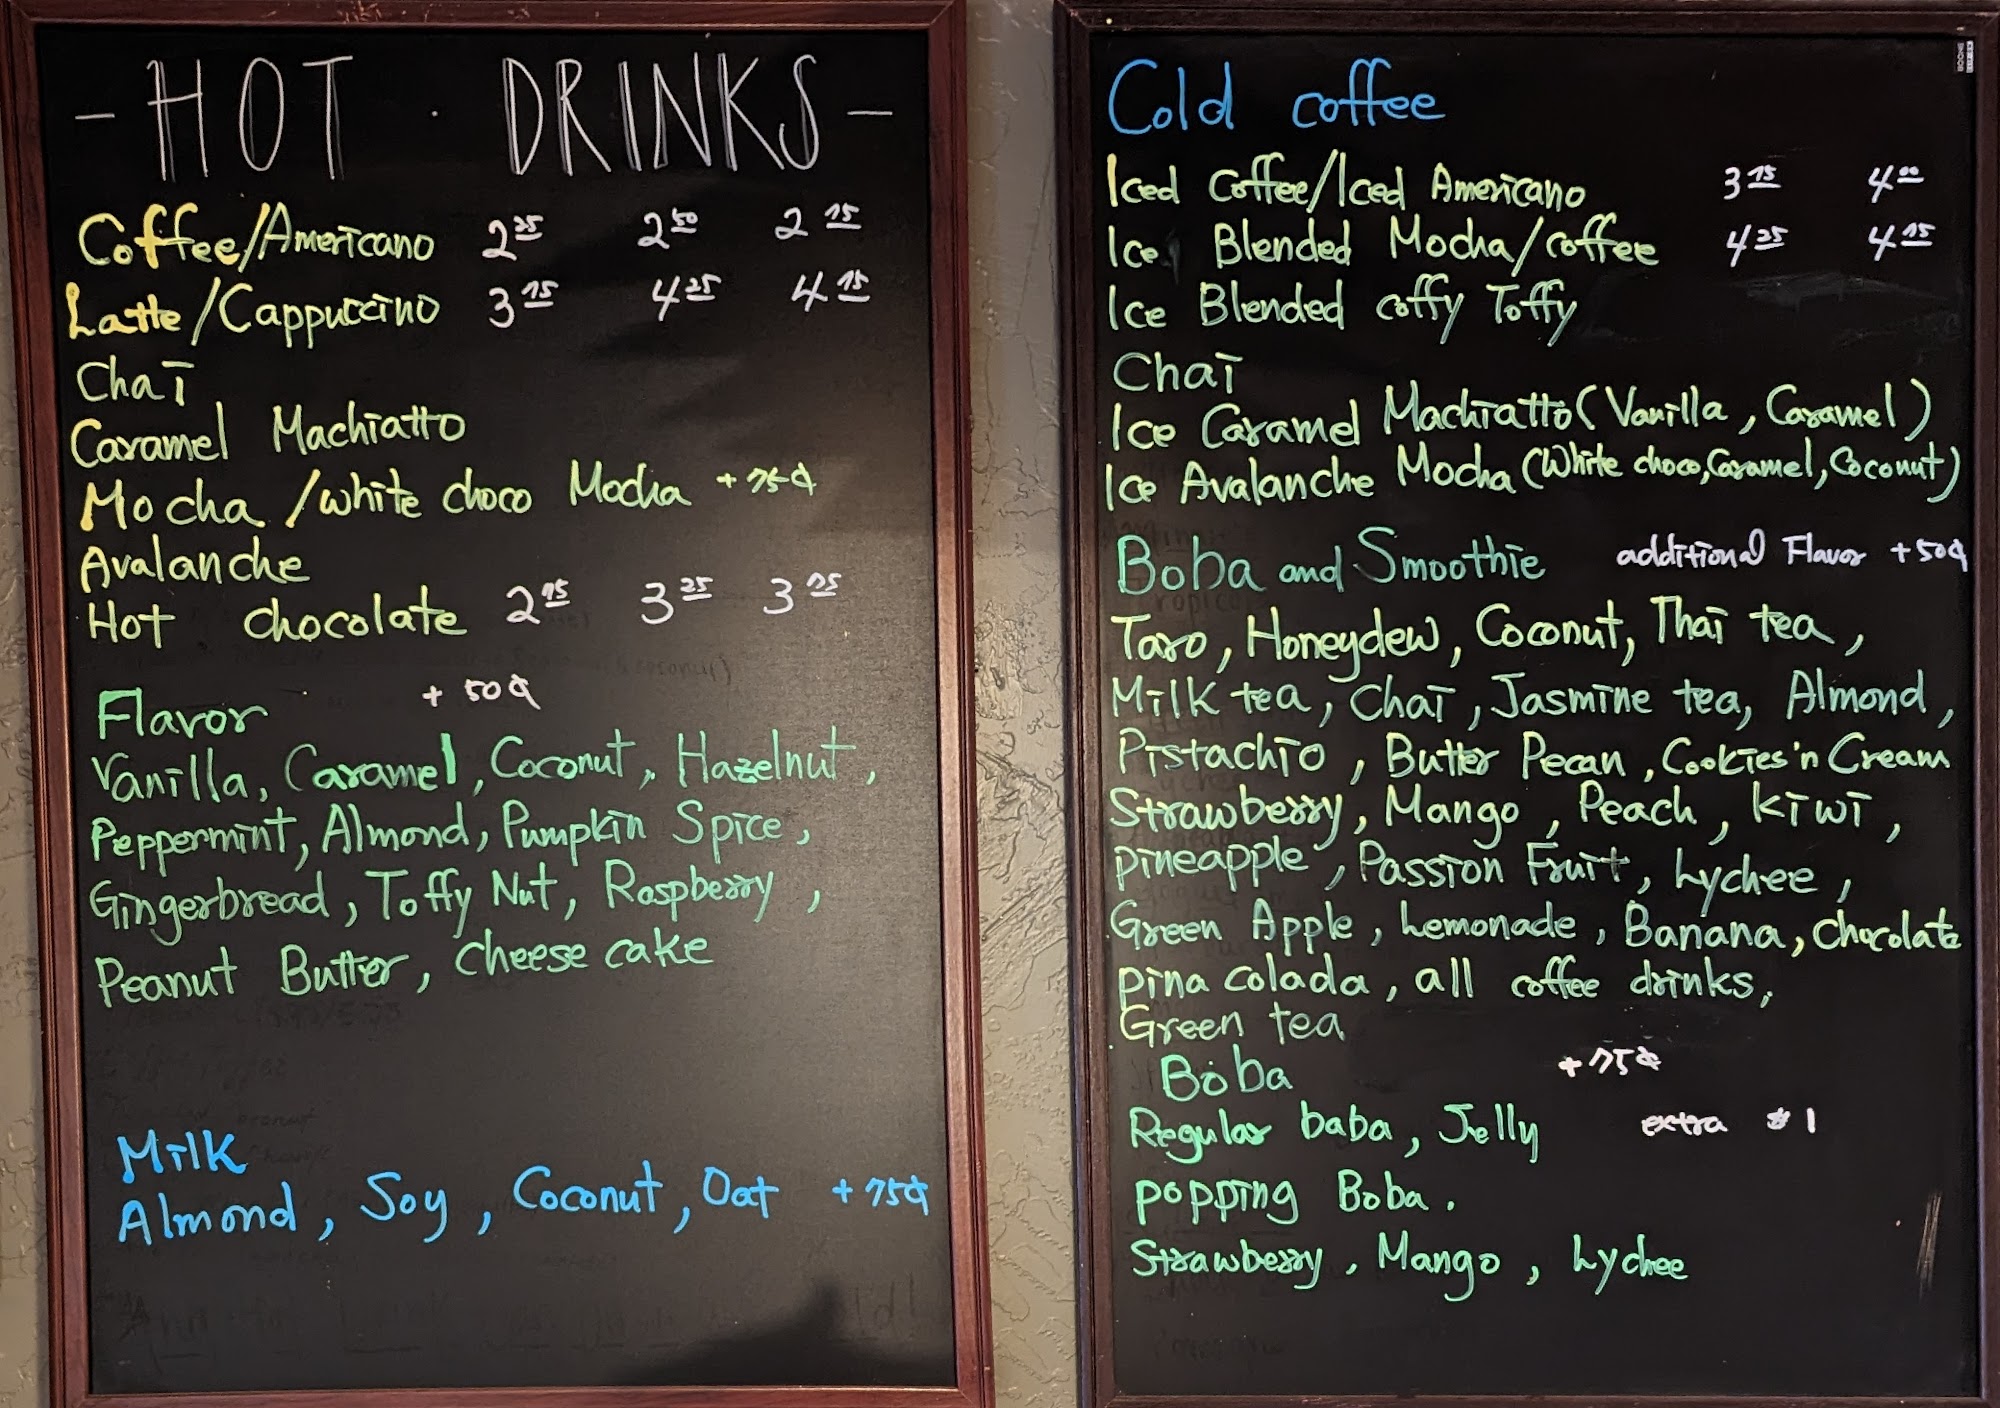 - HOT · DRINKS -
Coffee/Americano 2 25 2 50 2 75
Latte/Cappuccino 3 75 4 25 4 75
Chai
Caramel Machiatto
Mocha /white choco Mocha +75¢
Avalanche
Hot chocolate 2 75 3 25 3 75
Flavor +50¢
Vanilla, Caramel, Coconut, Hazelnut,
Peppermint, Almond, Pumpkin Spice,
Gingerbread, Toffy Nut, Raspberry,
Peanut Butter, cheese cake
Milk
Almond, Soy, Coconut, Oat +75¢
Cold coffee
Iced Coffee/Iced Americano 3 75 4 00
Ice Blended Mocha/coffee 4 25 4 75
Ice Blended coffy Toffy
Chai
Ice Caramel Machiatto (Vanilla, Caramel)
Ice Avalanche Mocha (White choco, Caramel, Coconut)
Boba and Smoothie additional Flavor +50¢
Taro, Honeydew, Coconut, Thai tea,
Milk tea, Chai, Jasmine tea, Almond,
Pistachio, Butter Pecan, Cookies'n Cream
Strawberry, Mango, Peach, kiwi,
pineapple, Passion Fruit, Lychee,
Green Apple, Lemonade, Banana, chocolate
pina colada, all coffee drinks,
Green tea
Boba +75¢
Regular baba, Jelly extra $1
popping Boba.
Strawberry, Mango, Lychee